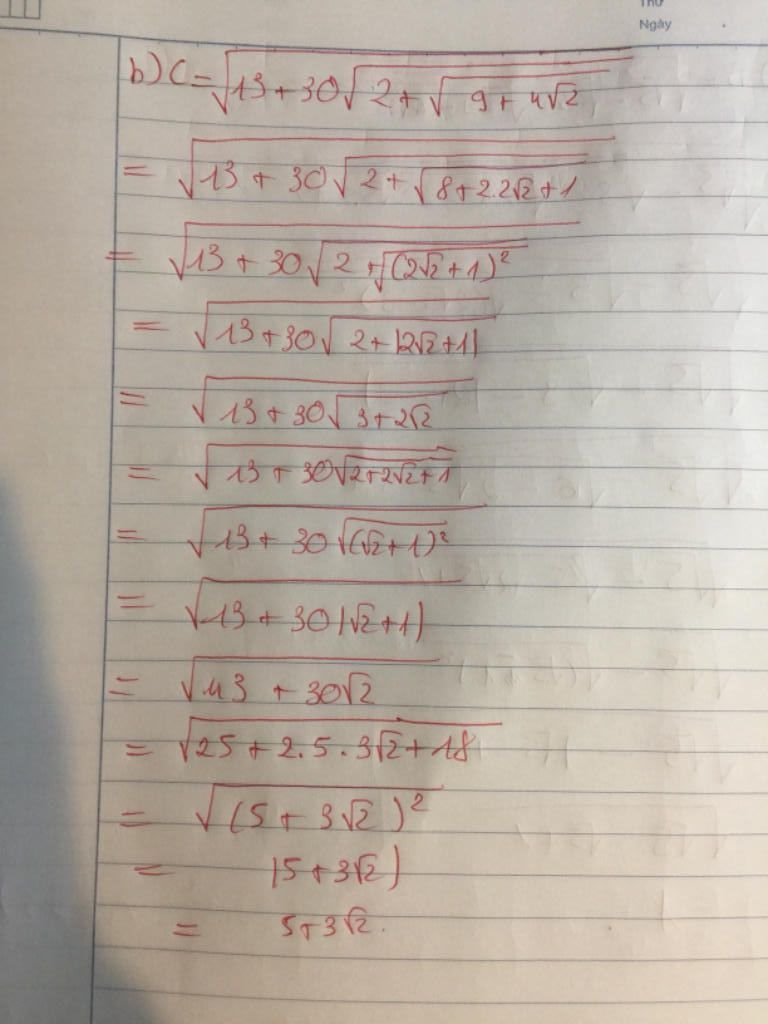 Thứ
Ngày
b) C = √(13 + 30√(2 + √(9 + 4√2)))
= √(13 + 30√(2 + √(8 + 2.2√2 + 1)))
= √(13 + 30√(2 + √((2√2 + 1)²)))
= √(13 + 30√(2 + |2√2 + 1|))
= √(13 + 30√(3 + 2√2))
= √(13 + 30√(2 + 2√2 + 1))
= √(13 + 30√((√2 + 1)²))
= √(13 + 30|√2 + 1|)
= √(43 + 30√2)
= √(25 + 2.5.3√2 + 18)
= √((5 + 3√2)²)
= |5 + 3√2|
= 5 + 3√2.